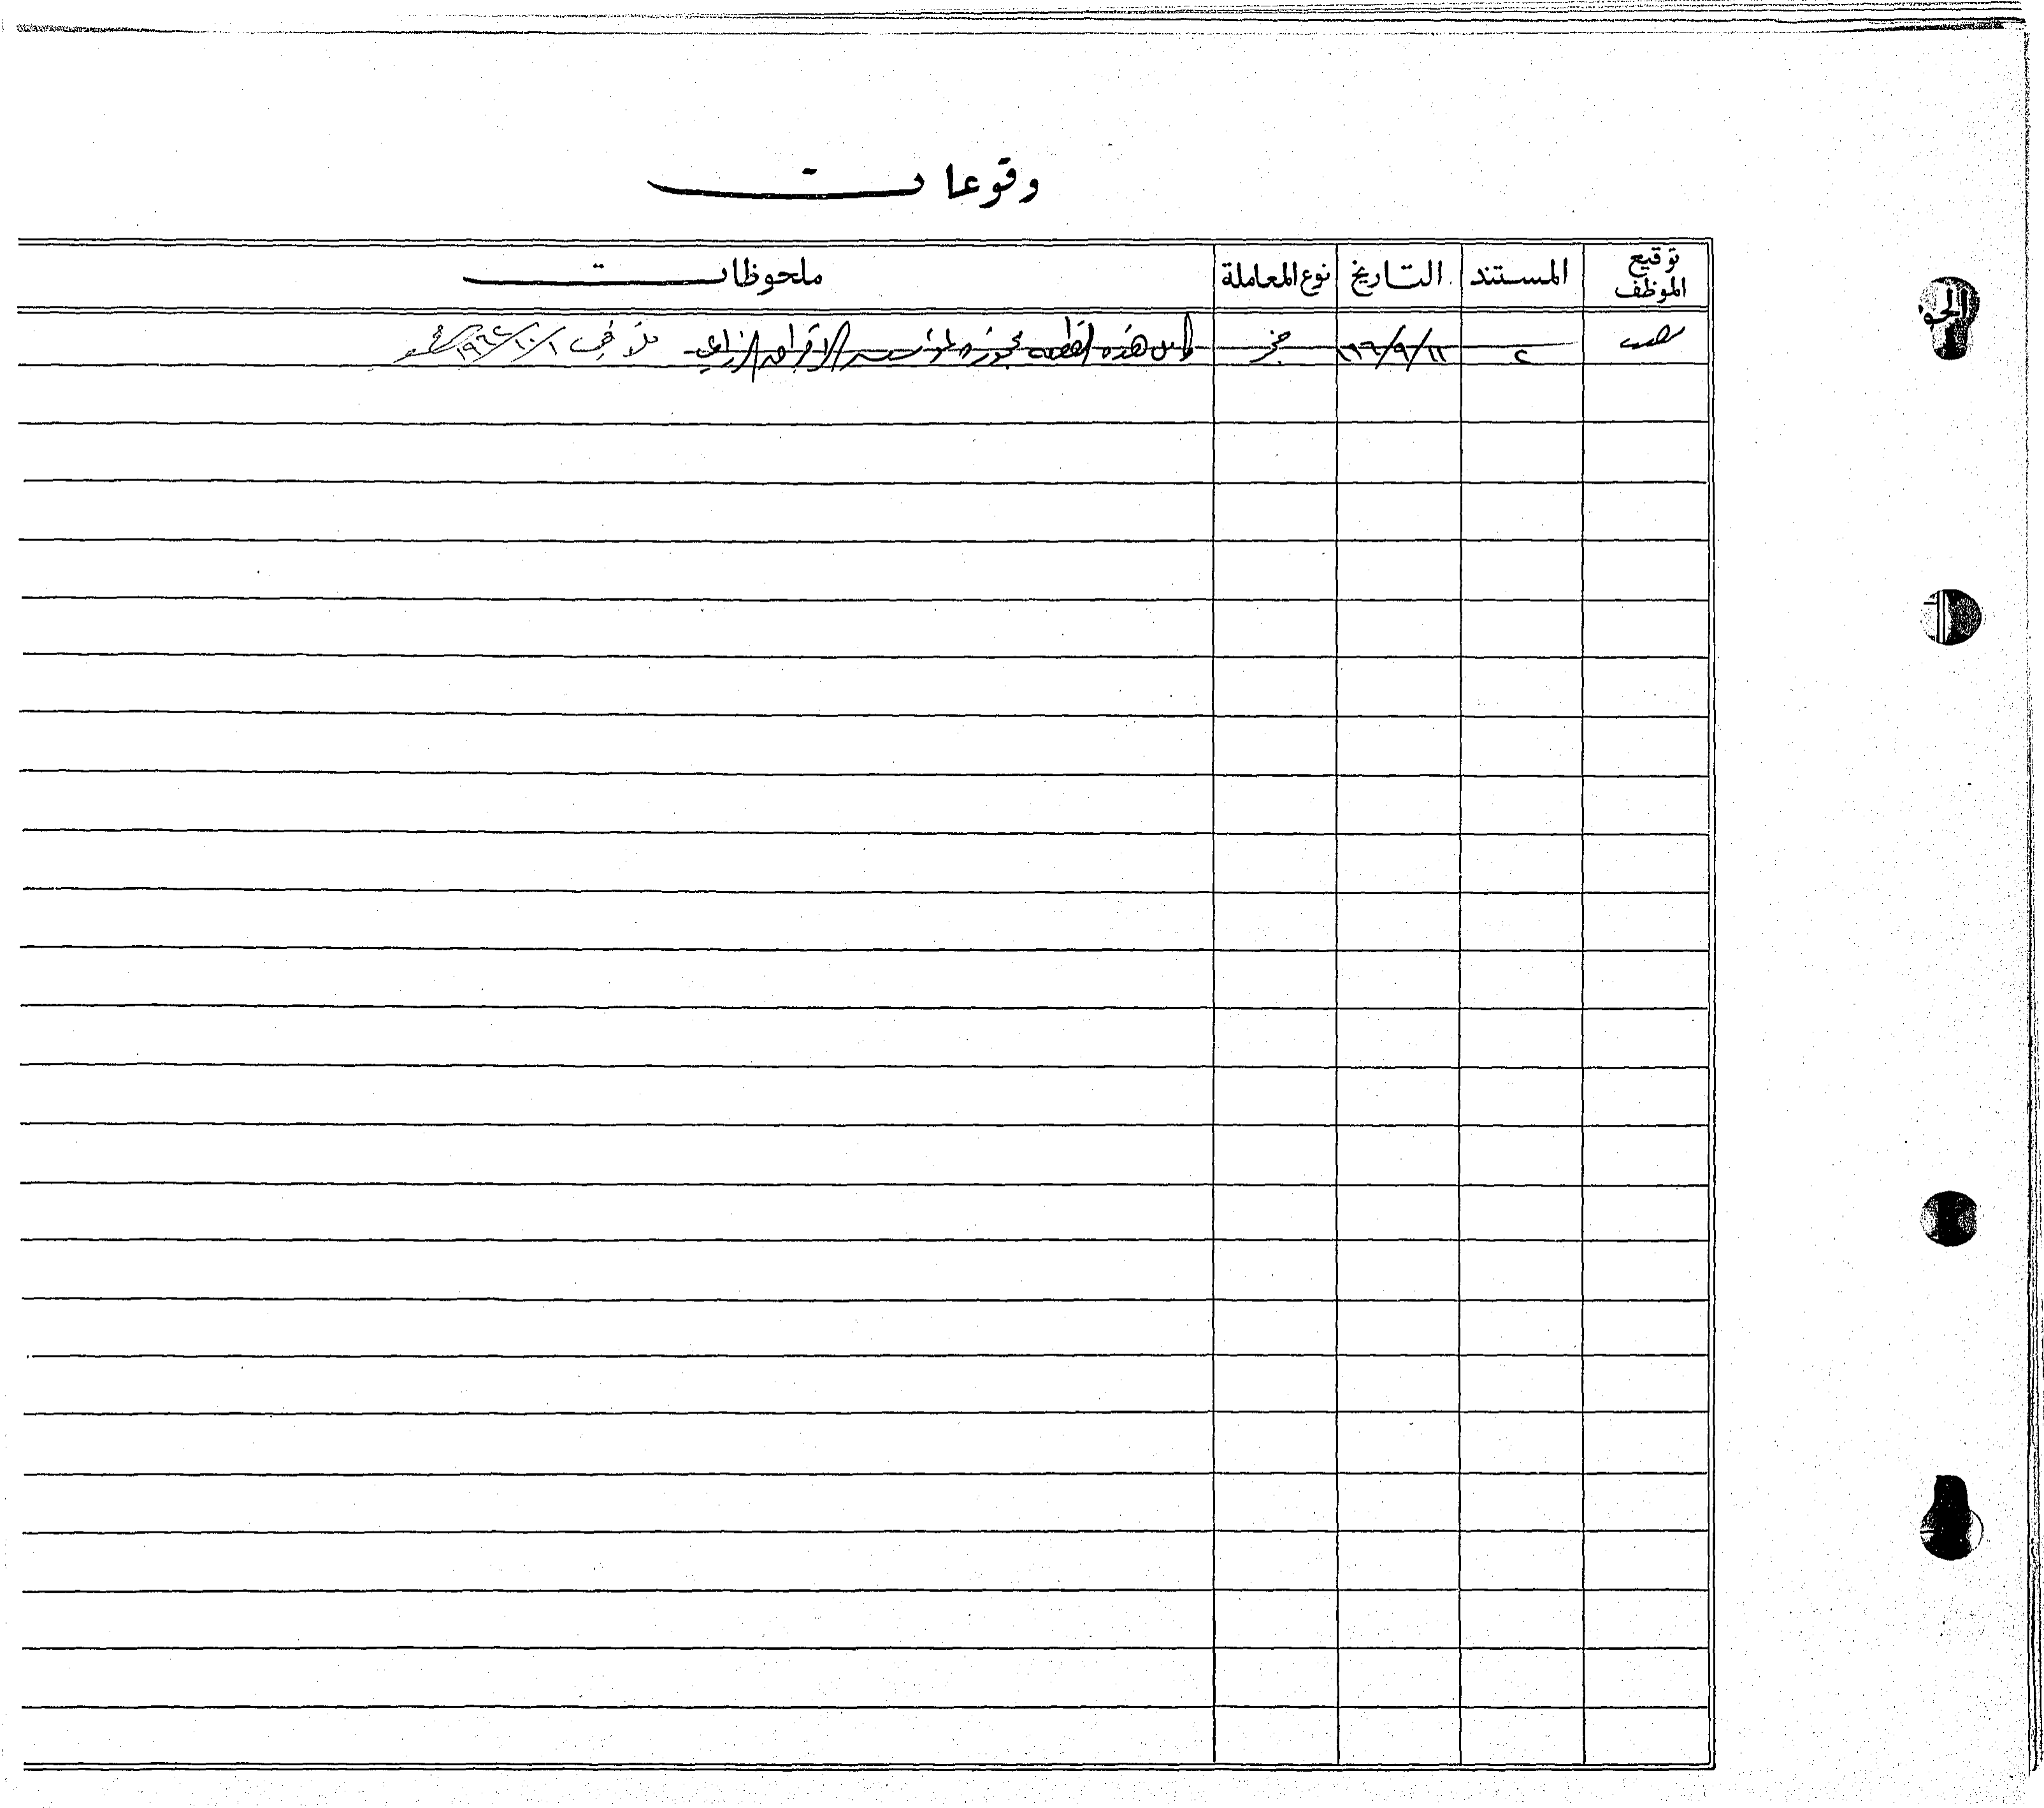 وقوعات
توقيع الموظف المستند التاريخ نوع المعاملة ملحوظات
٢ حجز هذه القطعة محجوزة لمؤسسة الاقراض الزراعي في ١/١٠/١٩٦٤
الحو